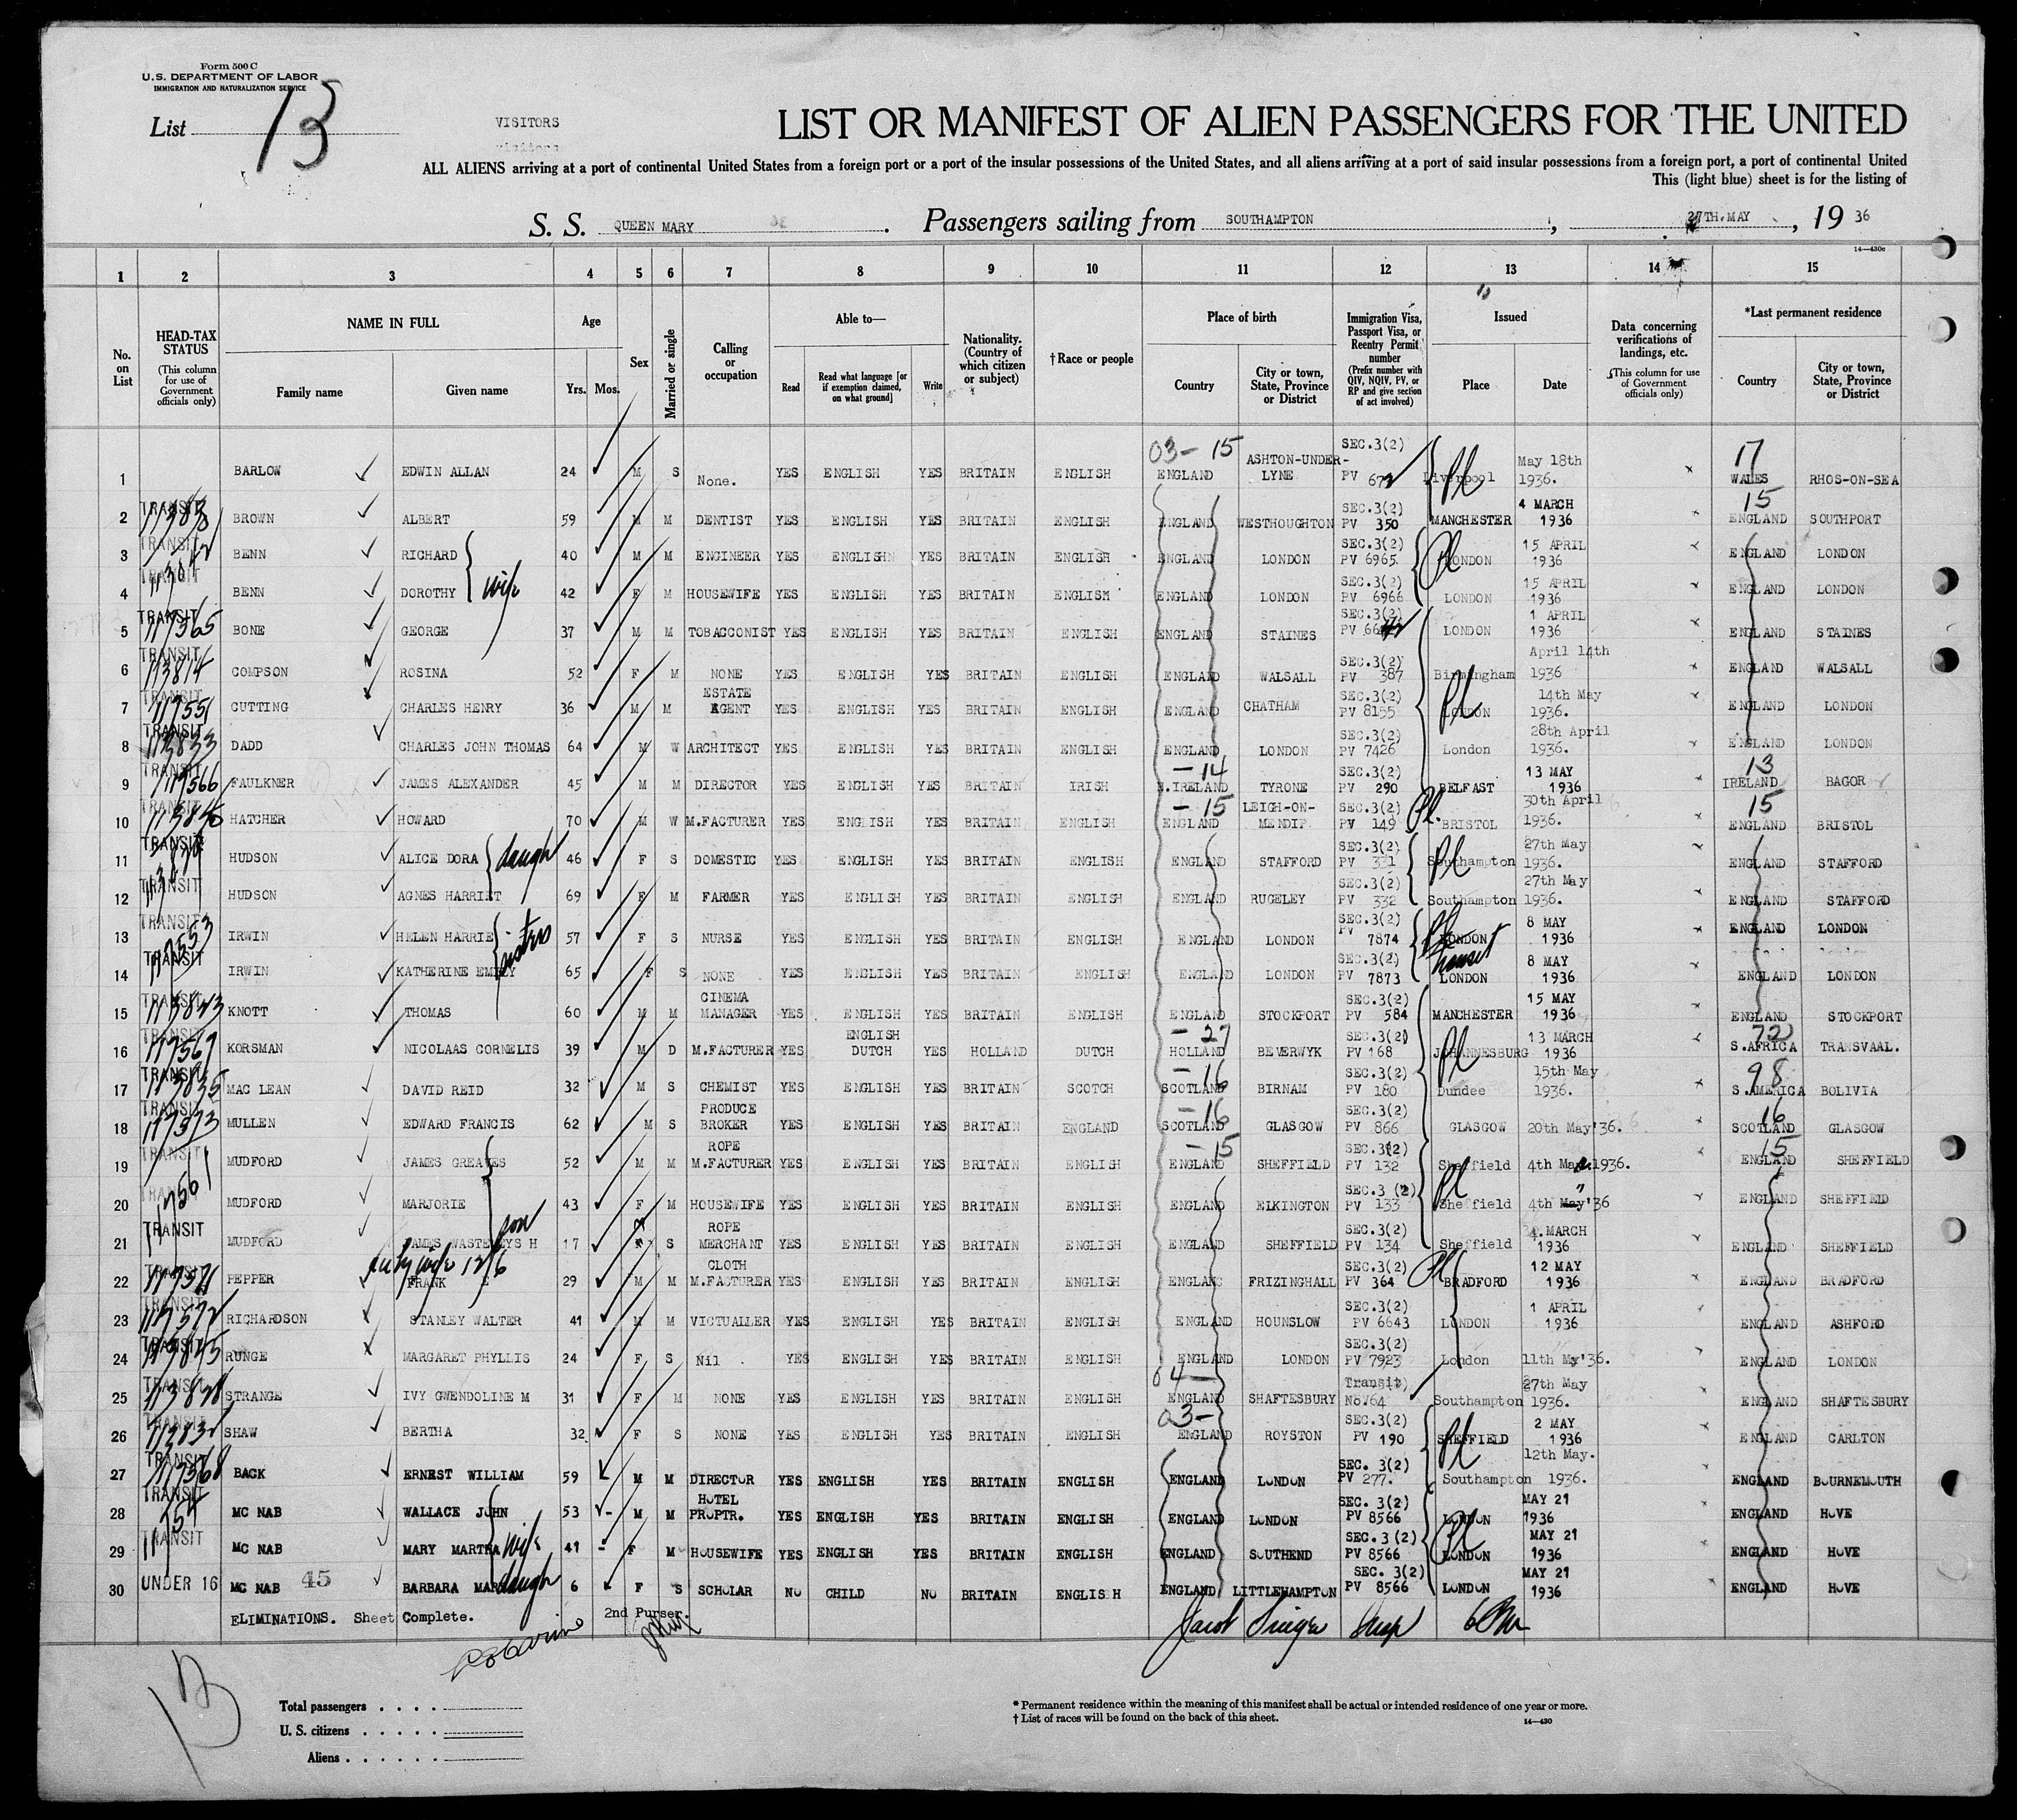 Form 500 C
U. S. DEPARTMENT OF LABOR
IMMIGRATION AND NATURALIZATION SERVICE
List 13
VISITORS
LIST OR MANIFEST OF ALIEN PASSENGERS FOR THE UNITED
ALL ALIENS arriving at a port of continental United States from a foreign port or a port of the insular possessions of the United States, and all aliens arriving at a port of said insular possessions from a foreign port, a port of continental United
This (light blue) sheet is for the listing of
S. S. QUEEN MARY. Passengers sailing from SOUTHAMPTON, 27TH.MAY, 19 36
14—430c
1 2 3 4 5 6 7 8 9 10 11 12 13 14 15
No. on List
HEAD-TAX STATUS (This column for use of Government officials only)
NAME IN FULL Family name Given name
Age Yrs. Mos.
Sex
Married or single
Calling or occupation
Able to— Read Read what language [or if exemption claimed, on what ground] Write
Nationality. (Country of which citizen or subject)
†Race or people
Place of birth Country City or town, State, Province or District
Immigration Visa, Passport Visa, or Reentry Permit number (Prefix number with QIV, NQIV, PV, or RP and give section of act involved)
Issued Place Date
Data concerning verifications of landings, etc. (This column for use of Government officials only)
*Last permanent residence Country City or town, State, Province or District
1 BARLOW EDWIN ALLAN 24 M S None. YES ENGLISH YES BRITAIN ENGLISH 03-15 ENGLAND ASHTON-UNDER-LYNE SEC.3(2) PV Liverpool May 18th 1936. 17 WALES RHOS-ON-SEA
2 TRANSIT BROWN ALBERT 59 M M DENTIST YES ENGLISH YES BRITAIN ENGLISH ENGLAND WESTHOUGHTON SEC.3(2) PV 350 MANCHESTER 4 MARCH 1936 15 ENGLAND SOUTHPORT
3 TRANSIT BENN RICHARD 40 M M ENGINEER YES ENGLISH YES BRITAIN ENGLISH ENGLAND LONDON SEC.3(2) PV 6965 LONDON 15 APRIL 1936 ENGLAND LONDON
4 TRANSIT BENN DOROTHY wife 42 F M HOUSEWIFE YES ENGLISH YES BRITAIN ENGLISH ENGLAND LONDON SEC.3(2) PV 6966 LONDON 15 APRIL 1936 ENGLAND LONDON
5 TRANSIT 117565 BONE GEORGE 37 M M TOBACCONIST YES ENGLISH YES BRITAIN ENGLISH ENGLAND STAINES SEC.3(2) PV LONDON 1 APRIL 1936 ENGLAND STAINES
6 TRANSIT 113814 COMPSON ROSINA 52 F M NONE YES ENGLISH YES BRITAIN ENGLISH ENGLAND WALSALL SEC.3(2) PV 387 Birmingham April 14th 1936 ENGLAND WALSALL
7 TRANSIT CUTTING CHARLES HENRY 36 M M ESTATE AGENT YES ENGLISH YES BRITAIN ENGLISH ENGLAND CHATHAM SEC.3(2) PV 8155 LONDON 14th May 1936. ENGLAND LONDON
8 TRANSIT 113833 DADD CHARLES JOHN THOMAS 64 M W ARCHITECT YES ENGLISH YES BRITAIN ENGLISH ENGLAND LONDON SEC.3(2) PV 7426 London 28th April 1936. ENGLAND LONDON
9 TRANSIT 117566 FAULKNER JAMES ALEXANDER 45 M M DIRECTOR YES ENGLISH YES BRITAIN IRISH -14 N.IRELAND TYRONE SEC.3(2) PV 290 BELFAST 13 MAY 1936 13 IRELAND BAGOR
10 TRANSIT HATCHER HOWARD 70 M W M.FACTURER YES ENGLISH YES BRITAIN ENGLISH -15 ENGLAND LEIGH-ON-MENDIP SEC.3(2) PV 149 BRISTOL 30th April 1936. 15 ENGLAND BRISTOL
11 TRANSIT HUDSON ALICE DORA daugh 46 F S DOMESTIC YES ENGLISH YES BRITAIN ENGLISH ENGLAND STAFFORD SEC.3(2) PV 331 Southampton 27th May 1936. ENGLAND STAFFORD
12 TRANSIT HUDSON AGNES HARRIET 69 F M FARMER YES ENGLISH YES BRITAIN ENGLISH ENGLAND RUGELEY SEC.3(2) PV 332 Southampton 27th May 1936. ENGLAND STAFFORD
13 TRANSIT IRWIN HELEN HARRIE sisters 57 F S NURSE YES ENGLISH YES BRITAIN ENGLISH ENGLAND LONDON SEC.3(2) PV 7874 LONDON 8 MAY 1936 ENGLAND LONDON
14 TRANSIT IRWIN KATHERINE EMILY 65 F S NONE YES ENGLISH YES BRITAIN ENGLISH ENGLAND LONDON SEC.3(2) PV 7873 transit LONDON 8 MAY 1936 ENGLAND LONDON
15 TRANSIT 113843 KNOTT THOMAS 60 M M CINEMA MANAGER YES ENGLISH YES BRITAIN ENGLISH ENGLAND STOCKPORT SEC.3(2) PV 584 MANCHESTER 15 MAY 1936 ENGLAND STOCKPORT
16 TRANSIT 117569 KORSMAN NICOLAAS CORNELIS 39 M D M.FACTURER YES ENGLISH DUTCH YES HOLLAND DUTCH -27 HOLLAND BEVERWYK SEC.3(2) PV 168 JOHANNESBURG 13 MARCH 1936 72 S.AFRICA TRANSVAAL.
17 TRANSIT 113835 MAC LEAN DAVID REID 32 M S CHEMIST YES ENGLISH YES BRITAIN SCOTCH -16 SCOTLAND BIRNAM SEC.3(2) PV 180 Dundee 15th May 1936. 98 S.AMERICA BOLIVIA
18 TRANSIT 117573 MULLEN EDWARD FRANCIS 62 M S PRODUCE BROKER YES ENGLISH YES BRITAIN ENGLAND -16 SCOTLAND GLASGOW SEC.3(2) PV 866 GLASGOW 20th May'36. 16 SCOTLAND GLASGOW
19 TRANSIT MUDFORD JAMES GREAVES 52 M M ROPE M.FACTURER YES ENGLISH YES BRITAIN ENGLISH -15 ENGLAND SHEFFIELD SEC.3(2) PV 132 Sheffield 4th 1936. 15 ENGLAND SHEFFIELD
20 TRANSIT MUDFORD MARJORIE 43 F M HOUSEWIFE YES ENGLISH YES BRITAIN ENGLISH ENGLAND ELKINGTON SEC.3(2) PV 133 Sheffield 4th May'36 ENGLAND SHEFFIELD
21 TRANSIT MUDFORD JAMES WASTENEYS H son 17 S ROPE MERCHANT YES ENGLISH YES BRITAIN ENGLISH ENGLAND SHEFFIELD SEC.3(2) PV 134 Sheffield 4 MARCH 1936 ENGLAND SHEFFIELD
22 TRANSIT 117571 PEPPER FRANK E 29 M M CLOTH M.FACTURER YES ENGLISH YES BRITAIN ENGLISH ENGLAND FRIZINGHALL SEC.3(2) PV 364 BRADFORD 12 MAY 1936 ENGLAND BRADFORD
23 TRANSIT 117572 RICHARDSON STANLEY WALTER 41 M M VICTUALLER YES ENGLISH YES BRITAIN ENGLISH ENGLAND HOUNSLOW SEC.3(2) PV 6643 LONDON 1 APRIL 1936 ENGLAND ASHFORD
24 TRANSIT 113845 RUNGE MARGARET PHYLLIS 24 F S Nil . YES ENGLISH YES BRITAIN ENGLISH ENGLAND LONDON SEC.3(2) PV 7923 London 11th My'36. ENGLAND LONDON
25 TRANSIT STRANGE IVY GWENDOLINE M 31 F M NONE YES ENGLISH YES BRITAIN ENGLISH 04- ENGLAND SHAFTESBURY Transit No.64 Southampton 27th May 1936. ENGLAND SHAFTESBURY
26 TRANSIT SHAW BERTHA 32 F S NONE YES ENGLISH YES BRITAIN ENGLISH 03- ENGLAND ROYSTON SEC.3(2) PV 190 SHEFFIELD 2 MAY 1936 ENGLAND CARLTON
27 TRANSIT 117568 BACK ERNEST WILLIAM 59 M M DIRECTOR YES ENGLISH YES BRITAIN ENGLISH ENGLAND LONDON SEC. 3(2) PV 277. Southampton 12th May. 1936. ENGLAND BOURNEMOUTH
28 TRANSIT MC NAB WALLACE JOHN 53 M M HOTEL PROPTR. YES ENGLISH YES BRITAIN ENGLISH ENGLAND LONDON SEC. 3(2) PV 8566 LONDON MAY 21 1936 ENGLAND HOVE
29 TRANSIT MC NAB MARY MARTHA wife 41 F M HOUSEWIFE YES ENGLISH YES BRITAIN ENGLISH ENGLAND SOUTHEND SEC. 3(2) PV 8566 LONDON MAY 21 1936 ENGLAND HOVE
30 UNDER 16 MC NAB 45 BARBARA daugh 6 F S SCHOLAR NO CHILD NO BRITAIN ENGLISH ENGLAND LITTLEHAMPTON SEC. 3(2) PV 8566 LONDON MAY 21 1936 ENGLAND HOVE
ELIMINATIONS. Sheet Complete. 2nd Purser.
13
Total passengers . . . .
U. S. citizens . . . . .
Aliens . . . . . .
* Permanent residence within the meaning of this manifest shall be actual or intended residence of one year or more.
† List of races will be found on the back of this sheet.
14—430